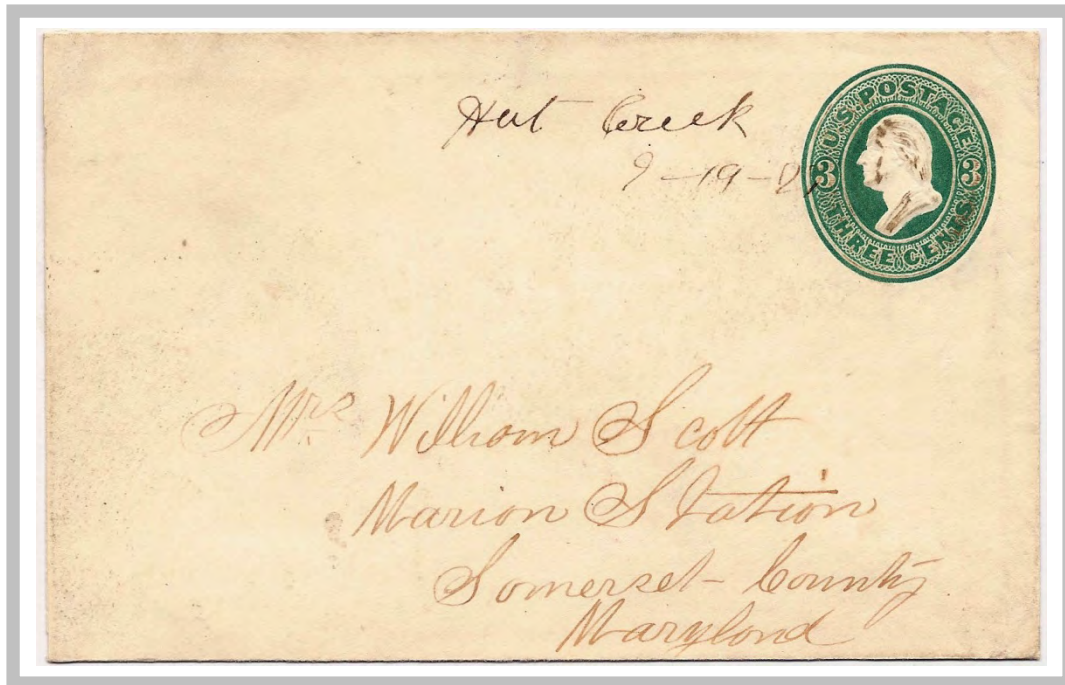 Hat Creek
9-19-8
U.S. POSTAGE
3 3
THREE CENTS
Mrs William Scott
Marion Station
Somerset County
Maryland